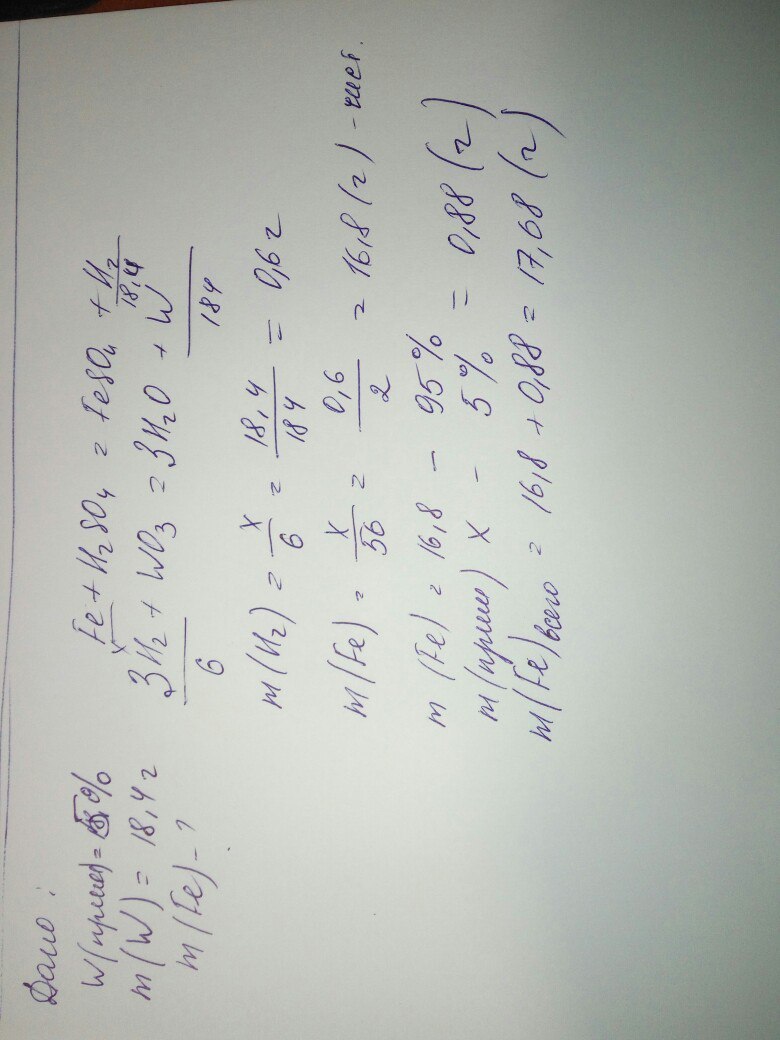 Дано:
W(прим) = 5%
m(W) = 18,4 г
m(Fe) - ?
x
Fe + H₂SO₄ = FeSO₄ + H₂
18,4
3H₂ + WO₃ = 3H₂O + W
6 184
m(H₂) = x/6 = 18,4/184 = 0,6 г
m(Fe) = x/56 = 0,6/2 = 16,8 (г) - чист.
m(Fe) = 16,8 - 95%
m(прим) x - 5% = 0,88 (г)
m(Fe)всего = 16,8 + 0,88 = 17,68 (г)